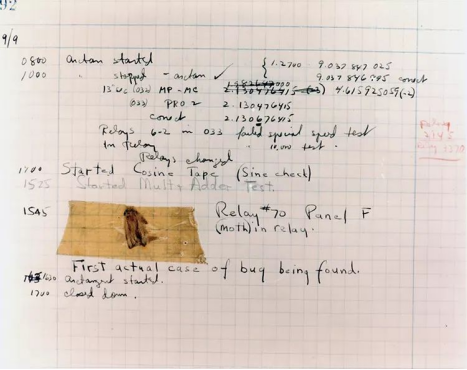 92
9/9
0800 arctan started
{ 1.2700 9.037 847 025
1000 " stopped - arctan ✓ 9.037 846 995 correct
13"uc (032) MP - MC 2.130476415 (-3) 4.615925059(-2)
(033) PRO 2 2.130476415
correct 2.130676415
Relays 6-2 in 033 failed special speed test
in relay " 10,000 test .
Relays changed
Started Cosine Tape (Sine check)
1525 Started Mult+ Adder Test.
1545 Relay #70 Panel F
(moth) in relay.
First actual case of bug being found.
1630 arctangent started.
1700 closed down .
Relay